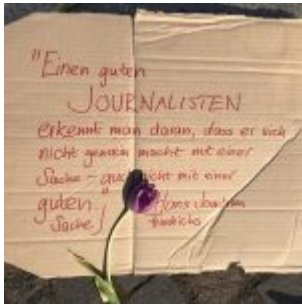 "Einen guten
JOURNALISTEN
erkennt man daran, dass er sich
nicht gemein macht mit einer
Sache - auch nicht mit einer
guten Hans Joachim
Sache" Friedrichs